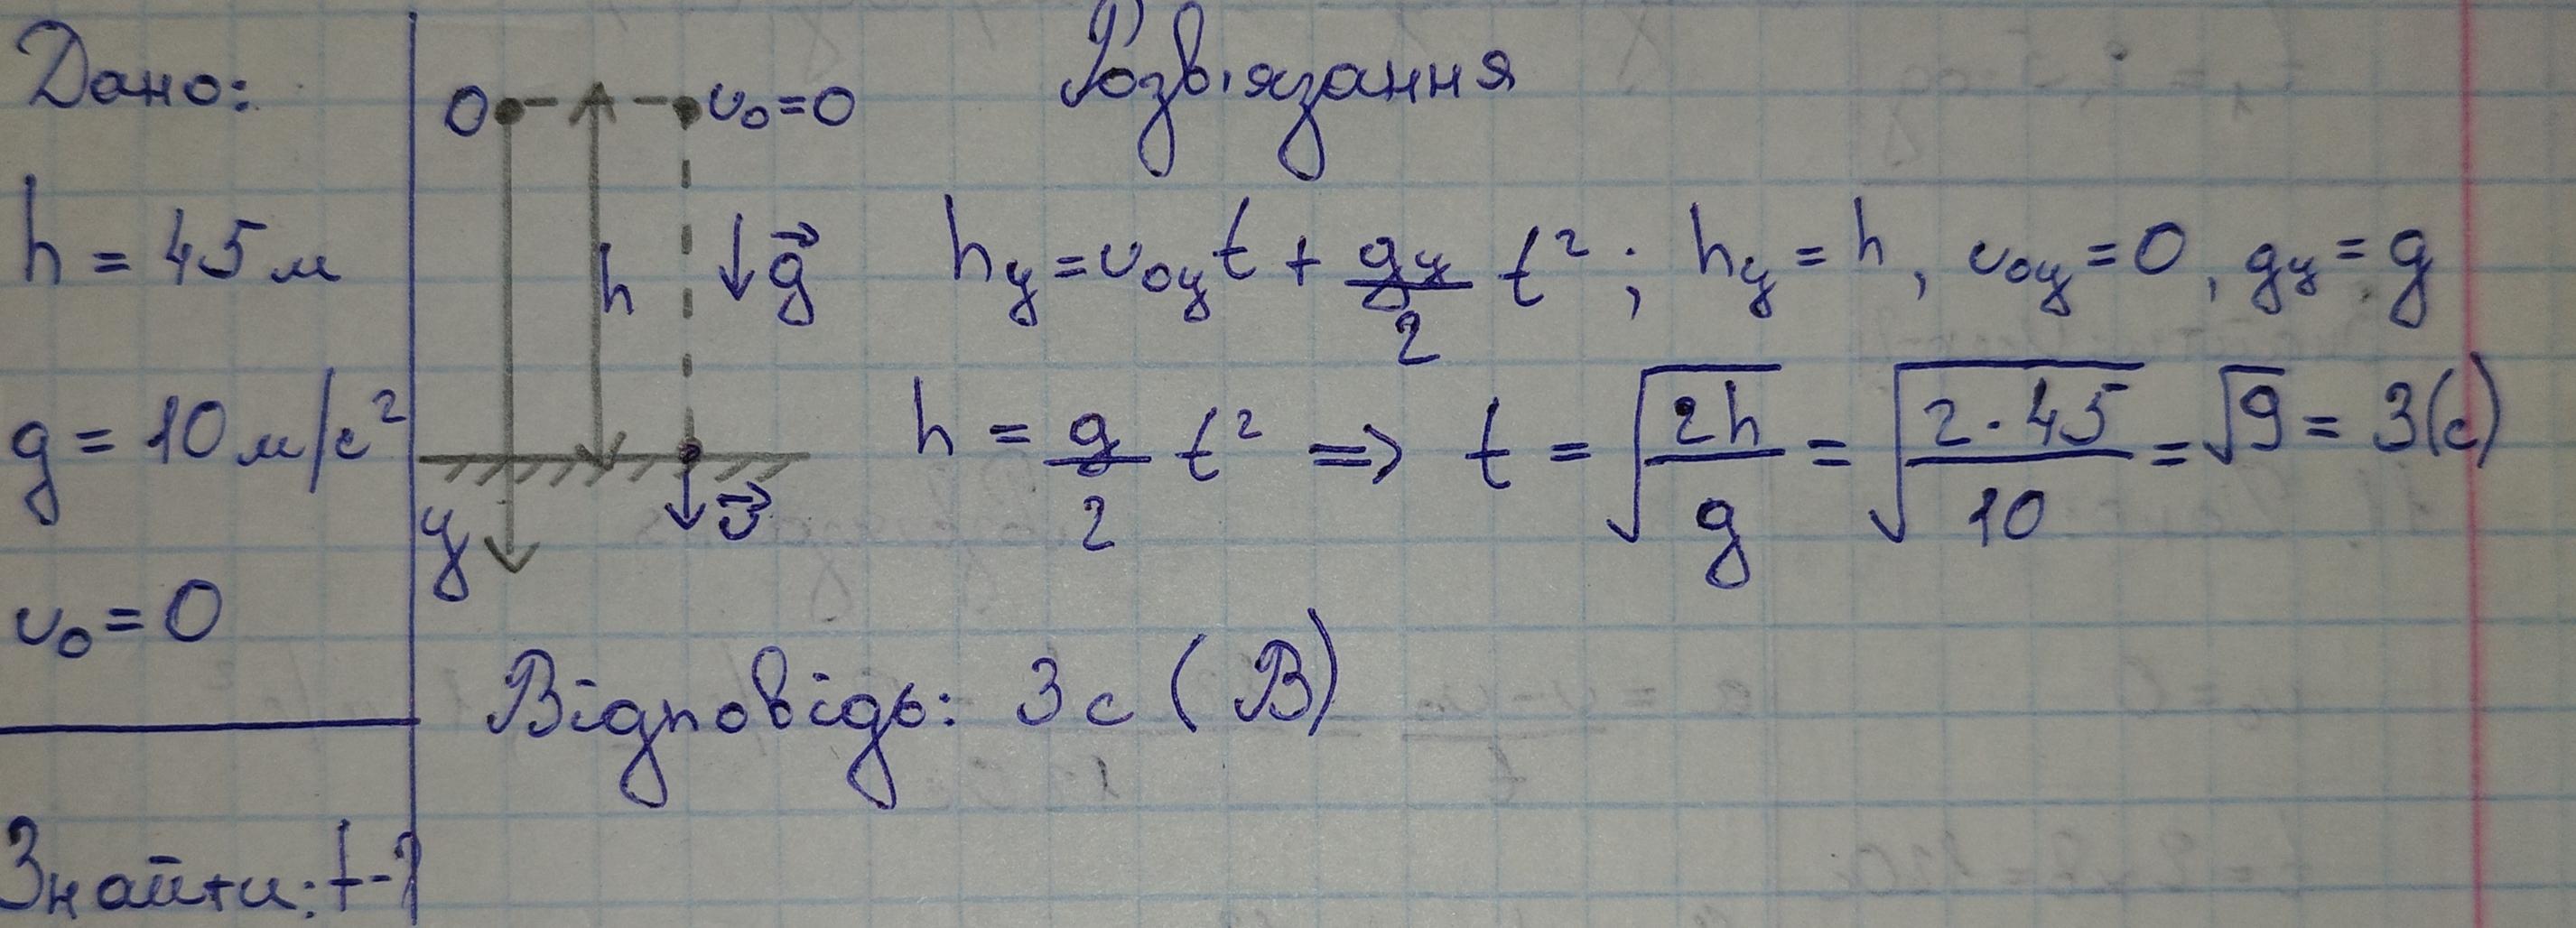 Дано:
h = 45 м
g = 10 м/с²
v₀ = 0
Знайти: t-?
0 v₀=0
h ↓g⃗
y v⃗
Розв'язання
h_y = v₀yt + g_y/2 t²; h_y = h, v₀y = 0, g_y = g
h = g/2 t² => t = √(2h/g) = √(2·45/10) = √9 = 3(с)
Відповідь: 3 с (В)